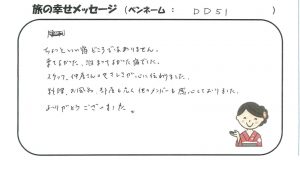 旅の幸せメッセージ（ペンネーム： DD51 ）
ちょっといい宿どころではありません。
来てよかった、泊まってよかった宿でした。
スタッフ、仲居さんのやさしさが心に伝わりました。
料理、お風呂、部屋も良く他のメンバーも感心しておりました。
ありがとうございました。